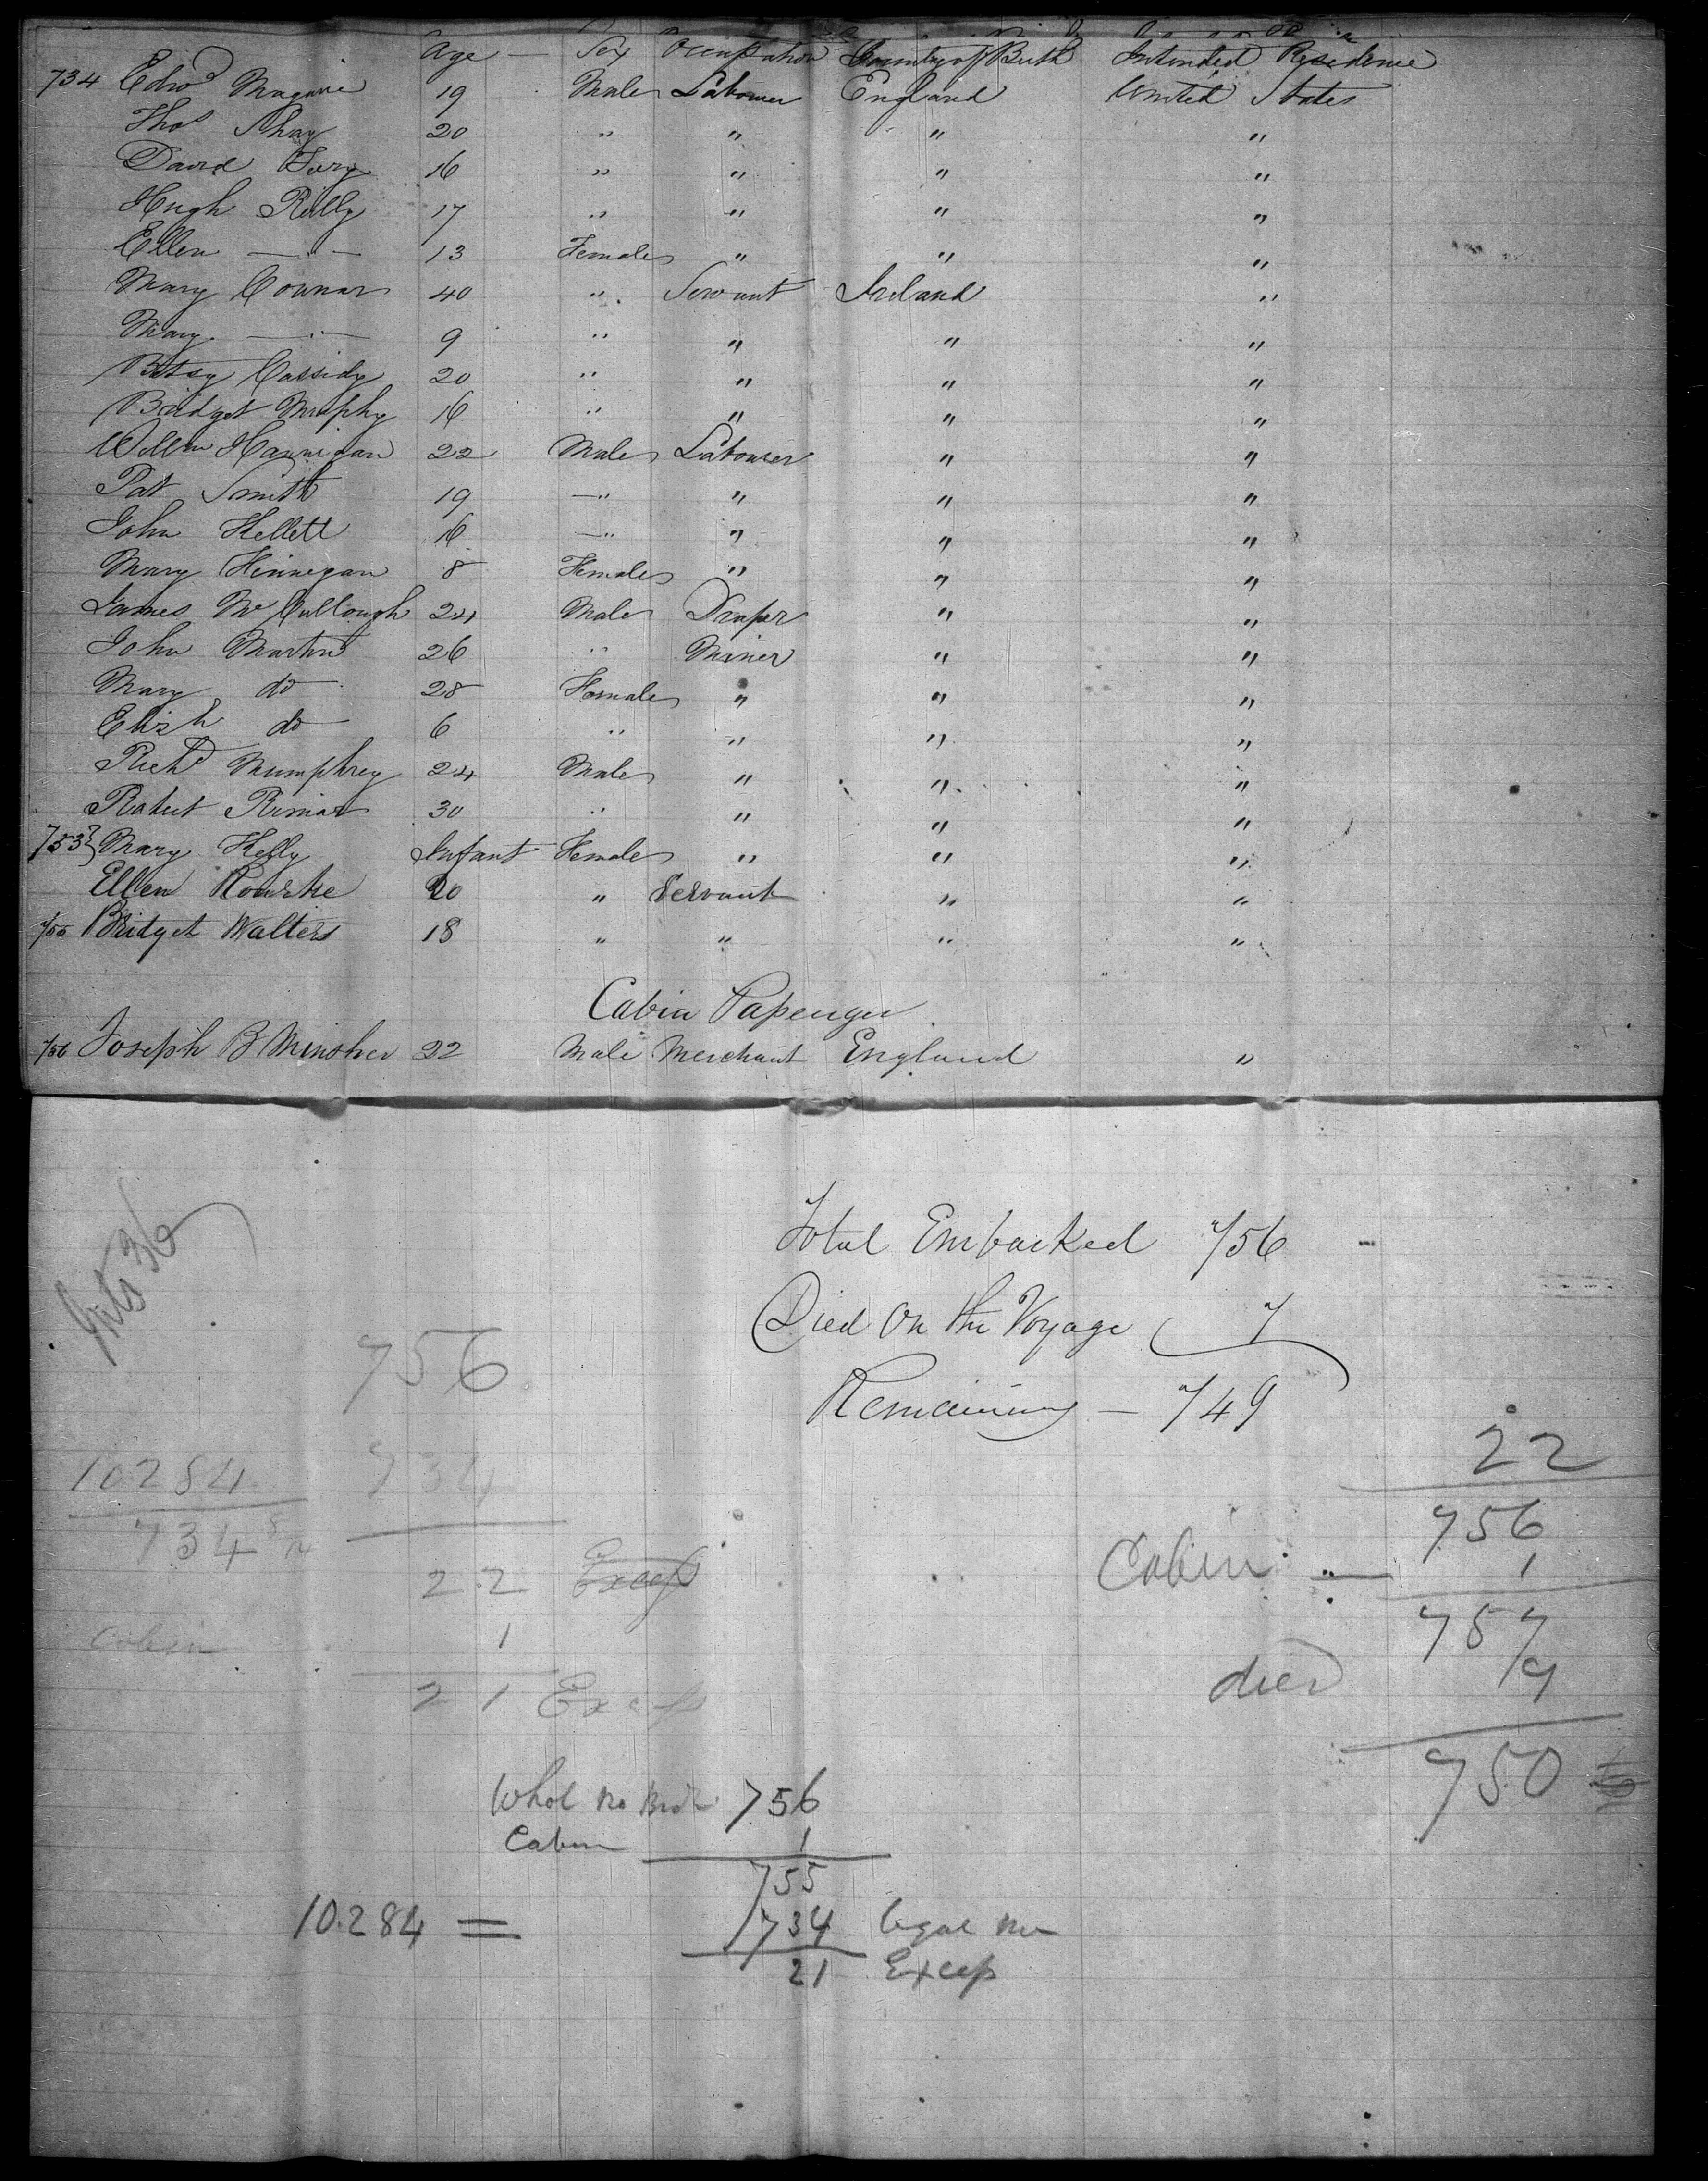 Age — Sex Occupation Country of Birth Intended Residence
734 Edwd Maguire 19 Male Labourer England United States
Thos Shay 20 " " " "
David 16 " " " "
Hugh Reilly 17 " " " "
Ellen — " — 13 Female " " "
Mary Connar 40 " Servant Ireland "
Mary — " — 9 " " " "
Betsy Cassidy 20 " " " "
Bridget Murphy 16 " " " "
Willm Hannigan 22 Male Labourer " "
Pat Smith 19 — " " " "
John Kellett 16 — " " " "
Mary Finnegan 8 Female " " "
James McCullough 24 Male Draper " "
John Martin 26 " Miner " "
Mary do 28 Female " " "
Elizh do 6 " " " "
Richd Mumphrey 24 Male " " "
Robert 30 " " " "
753} Mary Kelly Infant Female " " "
Ellen Rourke 20 " Servant " "
755 Bridget Walters 18 " " " "
Cabin Passenger
756 Joseph B Minsher 22 Male Merchant England "
Total Embarked 756
Died On the Voyage 7
Remaining — 749
36
756
734
22 Excess
1
21 Excess
10284
734 8/14
Cabin
22
756
Cabin " — 1
757
died 7
750
Whol No Brd 756
Cabin 1
755
10.284 = 734 legal No
21 Excess